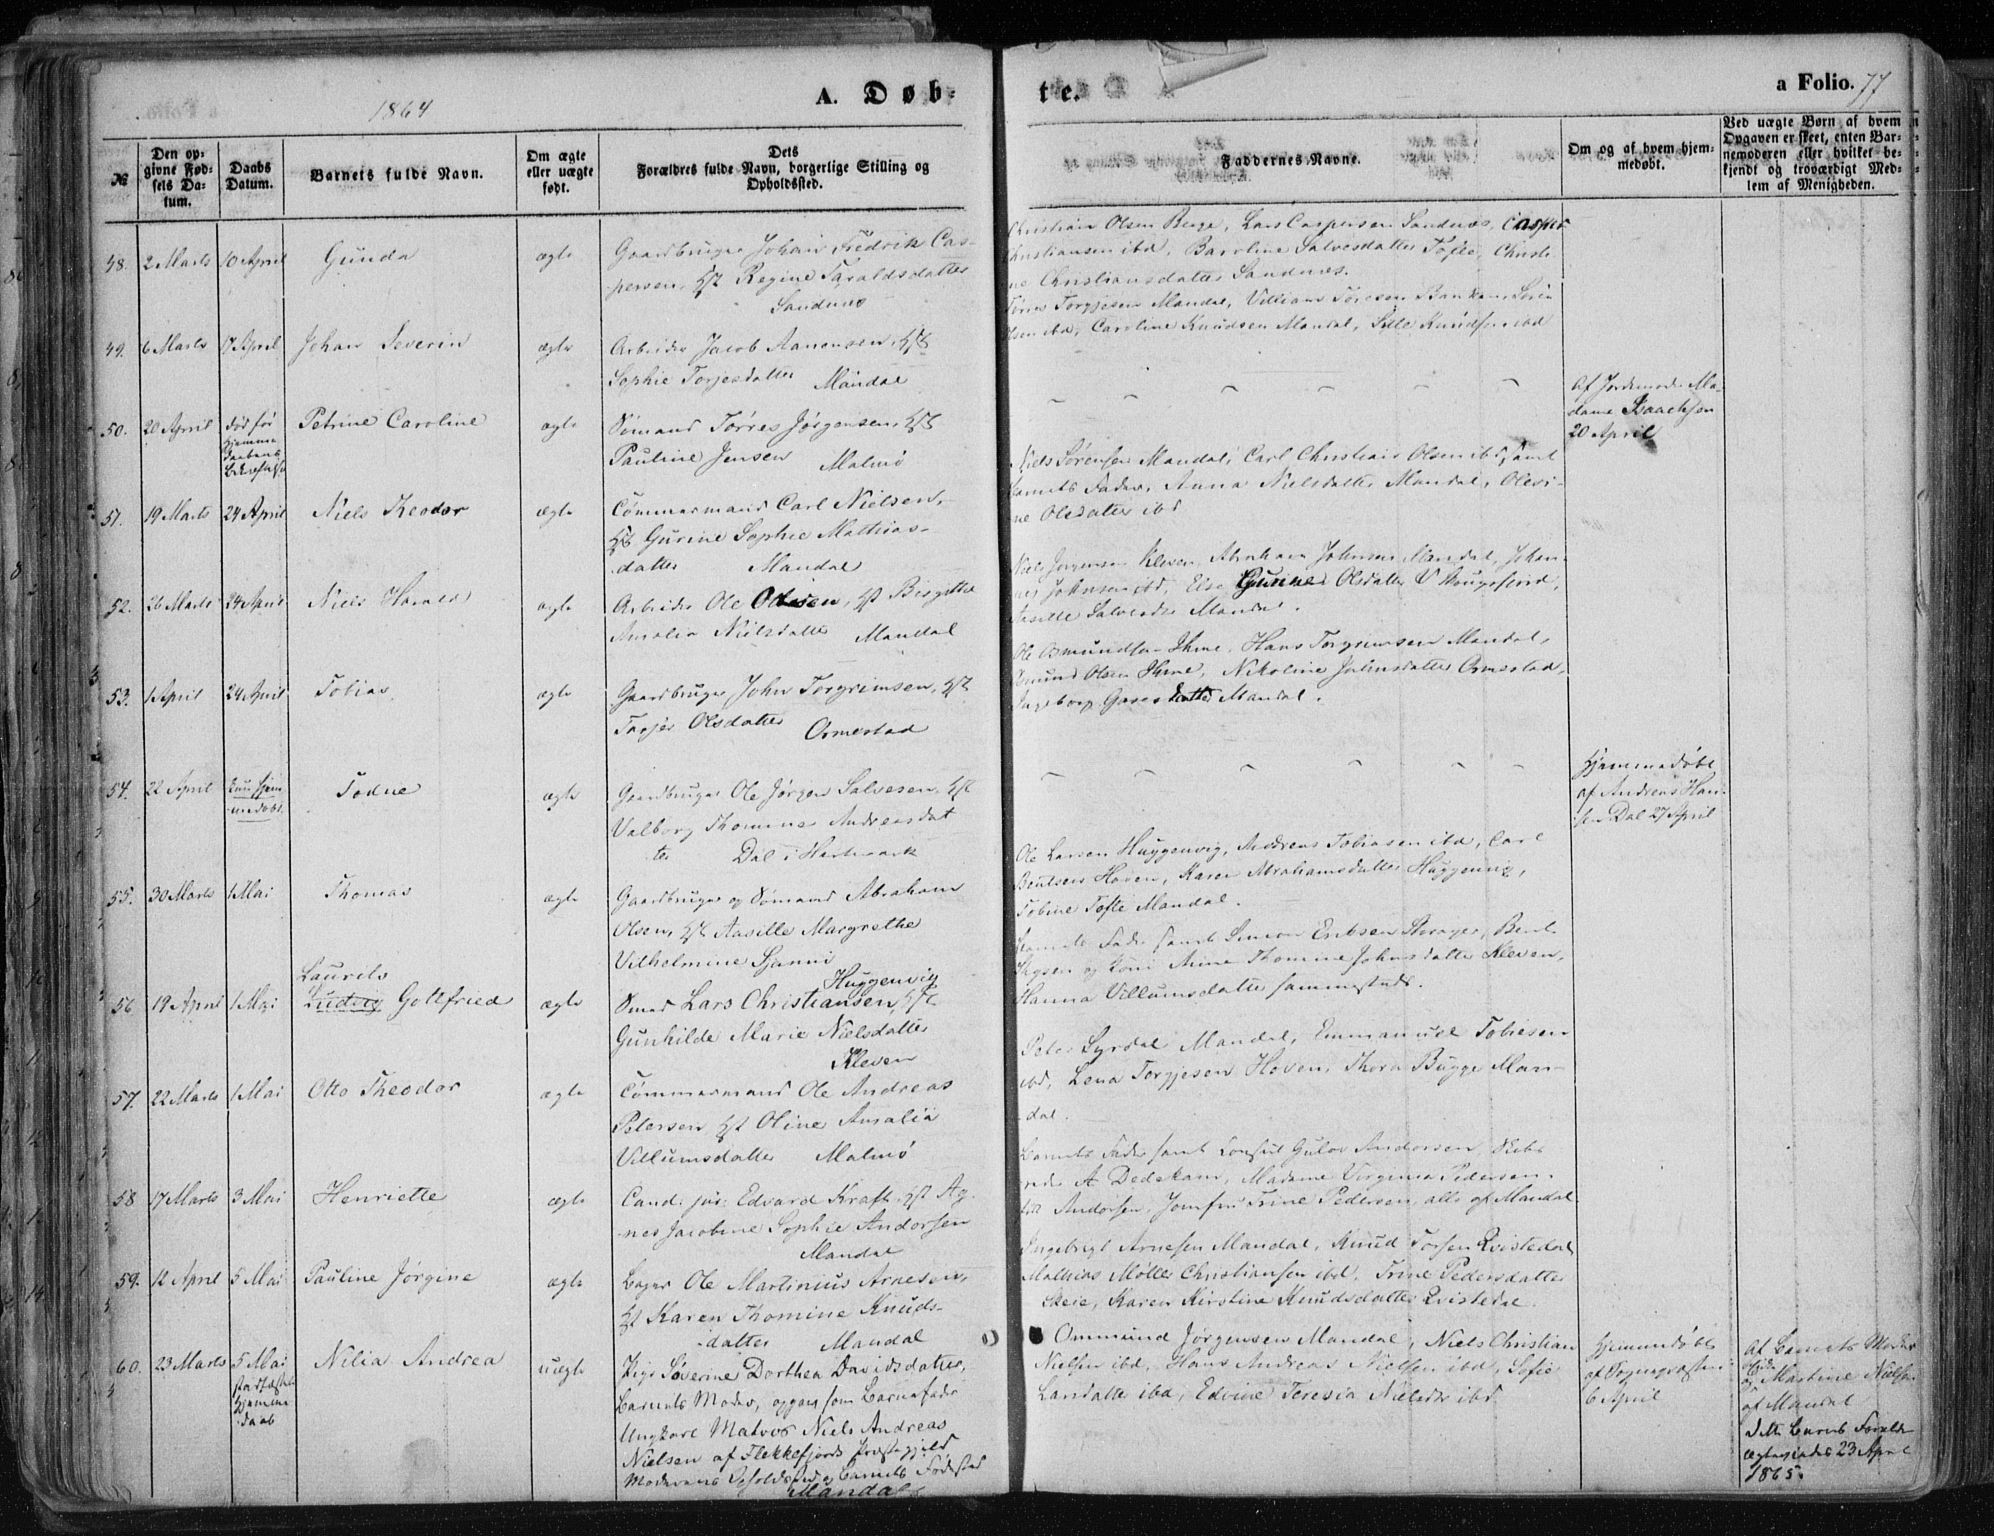 1864
A. Døb-
te.
a Folio. 77
№
Den op-
givne Fød-
sels Da-
tum.
Daabs
Datum.
Barnets fulde Navn.
Om ægte
eller uægte
født.
Dets
Forældres fulde Navn, borgerlige Stilling og
Opholdssted.
Faddernes Navne.
Om og af hvem hjem-
medøbt.
Ved uægte Børn af hvem
Opgaven er skeet, enten Bar-
nemoderen eller hvilket be-
kjendt og troværdigt Med-
lem af Menigheden.
48. 2 Marts 10 April Gunda ægte Gaardbruger Johan Fredrik Cas-
persen, Hst Regine Taraldsdatter
Sandnes
Christian Olsen Berge, Lars Caspersen Sandnes, Casper
Christiansen ibd, Baroline Salvesdatter Tofte, Christi-
ne Christiansdatter Sandnes.
49. 6 Marts 17 April Johan Severin ægte Arbeider Jacob Aanensen, Hst
Sophie Torjesdatter Mandal
Torgjesen Mandal, Villiam Toresen
Olsen ibd, Caroline Knudsen Mandal, Sille Knudsen ibd
50. 20 April død før
hjemme
daabens
bekræftelse
Petrine Caroline ægte Sømand Tørres Jørgensen, Hst
Pauline Jensen Malmø
Af Jordemoder Ma-
dame Isaachsen
20 April
51. 19 Marts 24 April Niels Theodor ægte Tømmermand Carl Nielsen,
Hst Gurine Sophie Mathias-
datter Mandal
Niels Sørensen Mandal, Carl Christian Olsen ibd, samt
Barnets Fader, Anna Nielsdatter Mandal, Olevi-
ne Olsdatter ibd
52. 26 Marts 24 April Niels Harald ægte Arbeider Ole Olsen, Hst Birgitte
Amalia Nielsdatter Mandal
Niels Jørgensen Kleven, Abraham Johnsen Mandal, Johan-
nes Johnsen ibd, Else Gurine Olsdatter
Aasille Salvesdtr Mandal.
53. 1 April 24 April Tobias ægte Gaardbruger John Torgrimsen, Hst
Tarjer Olsdatter Ormestad
Ole Osmundsen Ihme, Hans Torgrimsen Mandal,
Osmund Olsen Ihme, Nikoline Johnsdatter Ormestad,
Ingeborg datter Mandal.
54. 22 April Kun hjem-
medøbt.
Todne ægte Gaardbruger Ole Jørgen Salvesen, Hst
Valborg Thomine Andreasdat-
ter Dal i Hartmark
Hjemmedøbt
af Andreas Han-
sen Dal 27 April
55. 30 Marts 1 Mai Thomas ægte Gaardbruger og Sømand Abraham
Olsen, Hst Aasille Margrethe
Vilhelmine Sjanni
Huggenvig
Ole Larsen Huggenvig, Andreas Tobiasen ibd, Carl
Bentsen Hoven, Karen Abrahamsdatter Huggenvig,
Tobine Tofte Mandal.
56 19 April 1 Mai Laurits
Ludvig Gottfried ægte Smed Lars Christiansen, Hst
Gunhilde Marie Nielsdatter
Kleven
Barnets Fader samt Simon Eriksen Bent
Thysen og Kone Anne Thomine Johnsdatter Kleven,
Hanna Villumsdatter sammesteds.
57. 22 Marts 1 Mai Otto Theodor ægte Tømmermand Ole Andreas
Petersen, Hst Oline Amalia
Villumsdatter Malmø
Peter Syrdal Mandal, Emmanuel Tobiesen
ibd, Lena Torgjesen Hoven, Thora Bugge Man-
dal.
58 17 Marts 3 Mai Henriette ægte Cand. jur. Edvard Kraft, Hst Ag-
nes Jacobine Sophie Andorsen
Mandal
Barnets Fader samt Consul Gulov Andorsen,
A Dedekam, Madame Virginia Pedersen,
Andorsen, Jomfru Trine Pedersen, alle af Mandal
59. 12 April 5 Mai Pauline Jørgine ægte Bager Ole Martinius Arnesen,
Hst Karen Thomine Knuds-
datter Mandal
Ingebrigt Arnesen Mandal, Knud Torsen Qvistedal,
Mathias Møller Christiansen ibd, Trine Pedersdatter
Skeie, Karen Kirstine Knudsdatter Qvistedal.
60. 23 Marts 5 Mai
stadfæstet
Hjemme
daab
Nilia Andrea uægte Pige Severine Dorthea Davidsdatter,
Barnets Moder, opgav som Barnefader
Ungkarl Matros Niels Andreas
Nielsen af Flekkefjords Præstegjeld
Moderens Opholdssted og Barnets Fødested
Mandal
Ommund Jørgensen Mandal, Niels Christian
Nielsen ibd, Hans Andreas Nielsen ibd, Sofie
Larsdatter ibd, Edvine Teresia Nielsdtr ibd
Hjemmedøbt
af Sognepræsten
6 April
Af Barnets Moder
og Martine Nielsen
af Mandal
Dette Barns Foreldre
ægteviedes 23 April
1865.